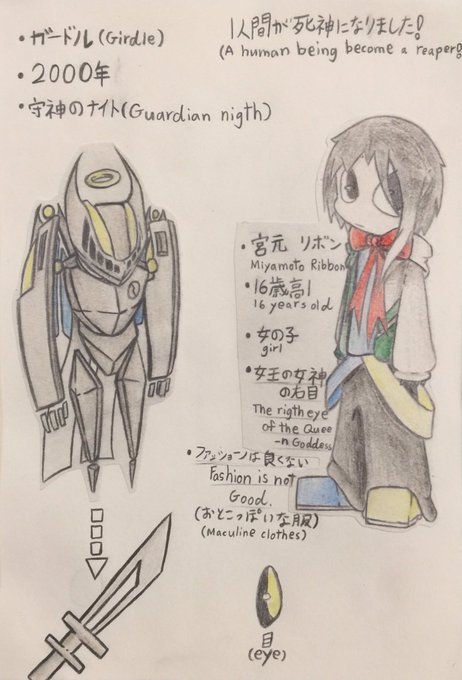 ・ガードル(Girdle)
・2000年
・守神のナイト(Guardian nigth)
1人間が死神になりました!
(A human being become a reaper!
・宮元 リボン
Miyamoto Ribbon
・16歳高1
16 years old
・女の子
girl
・女王の女神
の右目
The rigth eye
of the Quee
-n Goddess
・ファッションは良くない
Fashion is not
Good.
(おとこっぽいな服)
(Maculine clothes)
目
(eye)